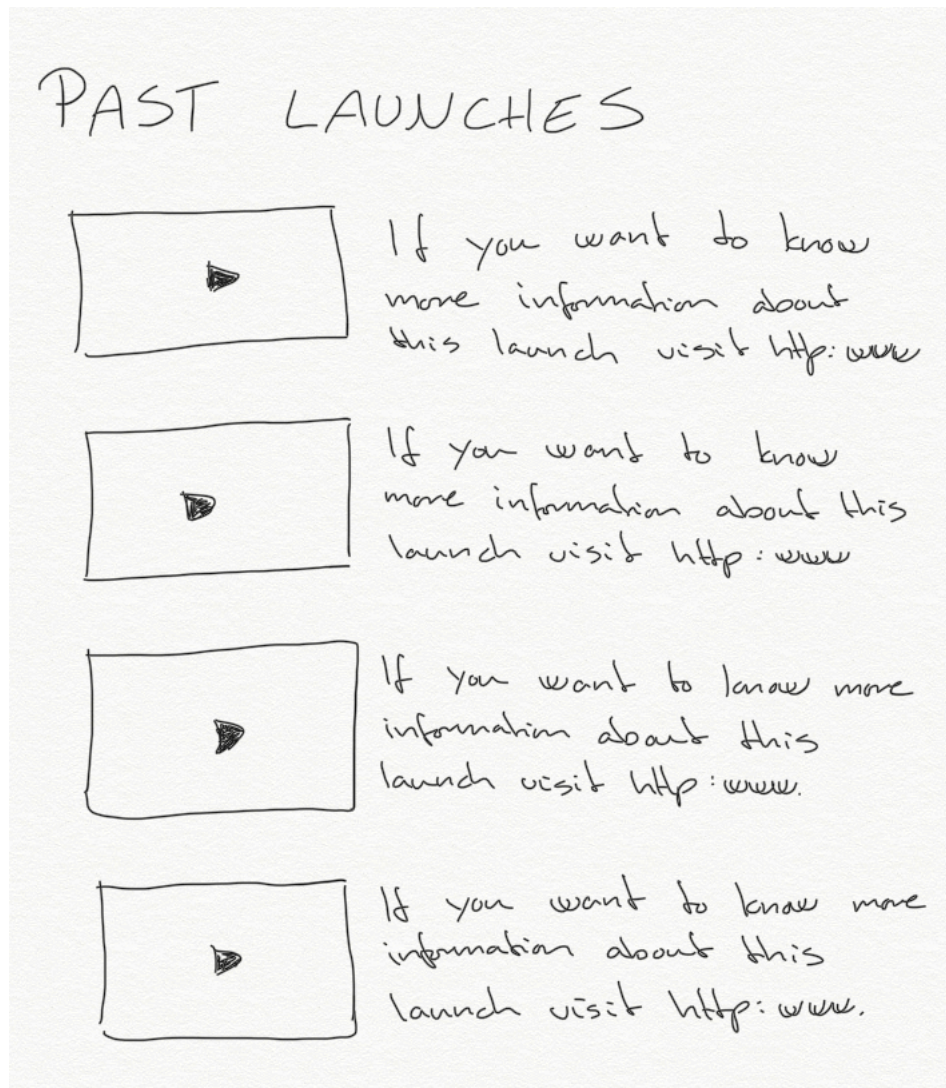 PAST LAUNCHES
If you want to know
more information about
this launch visit http: www
If you want to know
more information about this
launch visit http: www
If you want to know more
information about this
launch visit http: www.
If you want to know more
information about this
launch visit http: www.